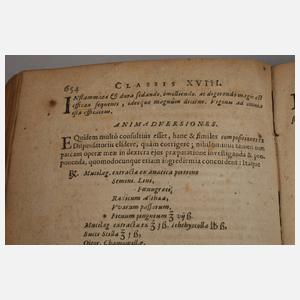 654 CLASSIS XVIII.
INflammata & dura sedando, emolliendo, ac digerendo magis est
efficax sequenti, ideoque magnum dicitur. Vigoris ad omnia
ista efficacem.
ANIMADVERSIONES.
EQuidem multò consultius esset, hanc & similes compositiones
Dispensatoriis elidere, quàm corrigere; nihilominus tamen non
parcam operæ meæ in dextera ejus præparatione investiganda & pro-
ponenda, quomodocunque etiam ingredientia concident: Itaque
℞. Mucilag. extractæ ex anatica portione
Semini. Lini,
Fœnugræci,
Radicum Althææ,
Uvarum passarum,
* Ficuum pinguium ℥ vij ß.
Mucilag. extractæ ℥ j ß. ichthyocolla ℔ ß.
Succi Scillæ ℥ j ß.
Olior. Chamomillæ,